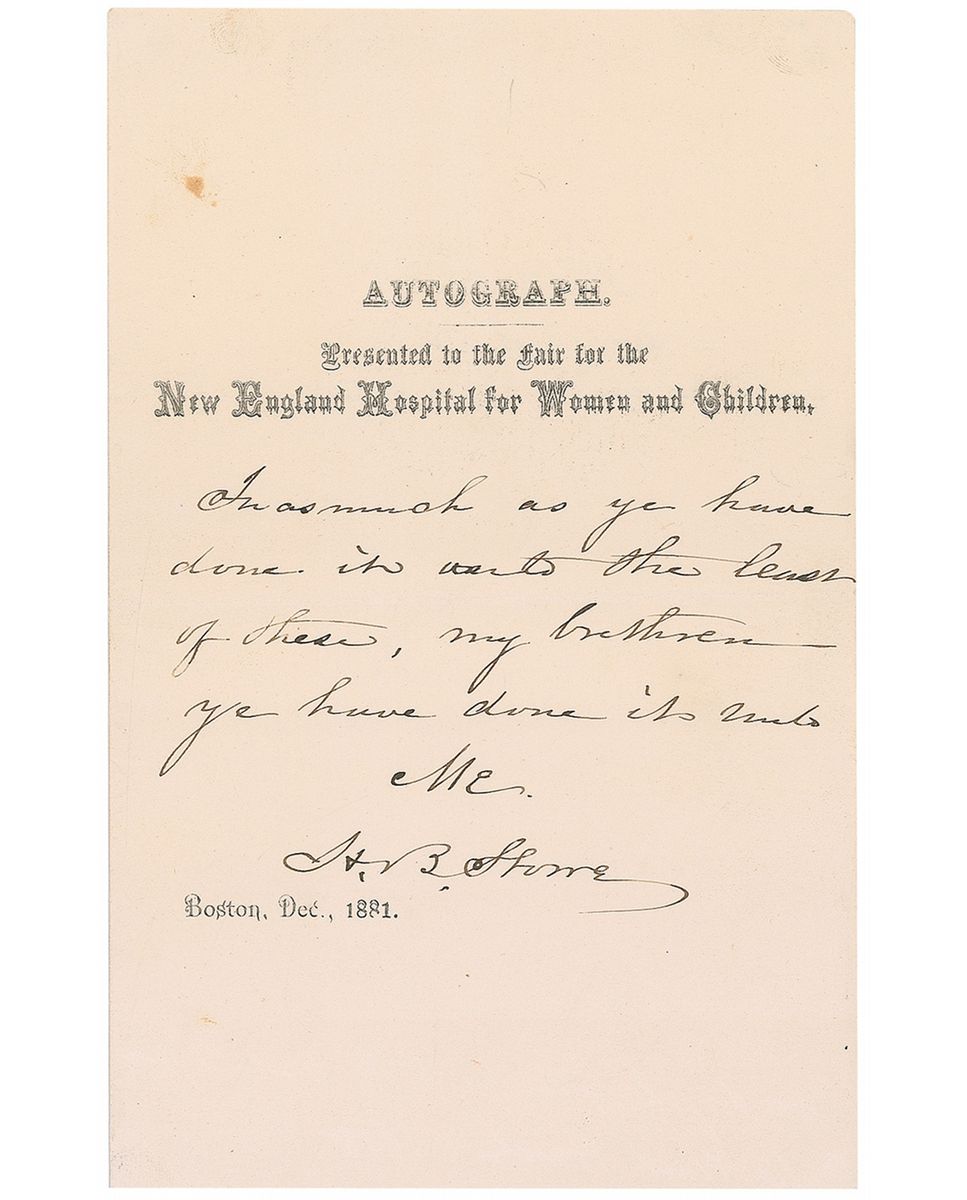 AUTOGRAPH.
Presented to the Fair for the
New England Hospital for Women and Children,
In as much as ye have
done it unto the least
of these, my brethren
ye have done it unto
Me.
H. B. Stowe
Boston, Dec., 1881.